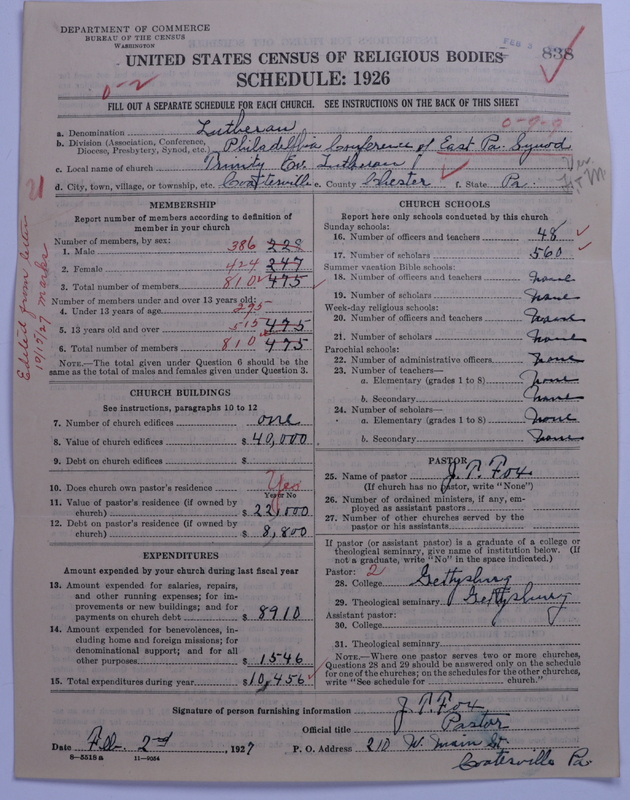 DEPARTMENT OF COMMERCE
BUREAU OF THE CENSUS
WASHINGTON
FEB 3
838
UNITED STATES CENSUS OF RELIGIOUS BODIES
SCHEDULE: 1926
0-2
FILL OUT A SEPARATE SCHEDULE FOR EACH CHURCH. SEE INSTRUCTIONS ON THE BACK OF THIS SHEET
0-9-9
a. Denomination Lutheran
b. Division (Association, Conference, Diocese, Presbytery, Synod, etc.) Philadelphia Conference of East Pa. Synod
c. Local name of church Trinity Ev. Lutheran
d. City, town, village, or township, etc. Coatesville e. County Chester f. State Pa.
Edited from letter 10/17/27 Marks
MEMBERSHIP
Report number of members according to definition of
member in your church
Number of members, by sex:
1. Male 386 228
2. Female 424 247
3. Total number of members 810 475
Number of members under and over 13 years old:
4. Under 13 years of age 295
5. 13 years old and over 515 475
6. Total number of members 810 475
NOTE.—The total given under Question 6 should be the
same as the total of males and females given under Question 3.
CHURCH BUILDINGS
See instructions, paragraphs 10 to 12
7. Number of church edifices one
8. Value of church edifices $ 40,000
9. Debt on church edifices $
10. Does church own pastor's residence Yes
Yes or No
11. Value of pastor's residence (if owned by
church) $ 22,000
12. Debt on pastor's residence (if owned by
church) $ 8,800
EXPENDITURES
Amount expended by your church during last fiscal year
13. Amount expended for salaries, repairs,
and other running expenses; for im-
provements or new buildings; and for
payments on church debt $ 8910
14. Amount expended for benevolences, in-
cluding home and foreign missions; for
denominational support; and for all
other purposes $ 1546
15. Total expenditures during year $ 10,456
CHURCH SCHOOLS
Report here only schools conducted by this church
Sunday schools:
16. Number of officers and teachers 48
17. Number of scholars 560
Summer vacation Bible schools:
18. Number of officers and teachers none
19. Number of scholars none
Week-day religious schools:
20. Number of officers and teachers none
21. Number of scholars none
Parochial schools:
22. Number of administrative officers none
23. Number of teachers—
a. Elementary (grades 1 to 8) none
b. Secondary none
24. Number of scholars—
a. Elementary (grades 1 to 8) none
b. Secondary none
PASTOR
25. Name of pastor J. T. Fox
(If church has no pastor, write "None")
26. Number of ordained ministers, if any, em-
ployed as assistant pastors
27. Number of other churches served by the
pastor or his assistants
If pastor (or assistant pastor) is a graduate of a college or
theological seminary, give name of institution below. (If
not a graduate, write "No" in the space indicated.)
Pastor: 2
28. College Gettysburg
29. Theological seminary Gettysburg
Assistant pastor:
30. College
31. Theological seminary
NOTE.—Where one pastor serves two or more churches,
Questions 28 and 29 should be answered only on the schedule
for one of the churches; on the schedules for the other churches,
write "See schedule for church."
Signature of person furnishing information J. T. Fox
Official title Pastor
Date Feb. 2nd, 1927 P. O. Address 210 W. Main St.
Coatesville Pa
8-5518 a 11-9054